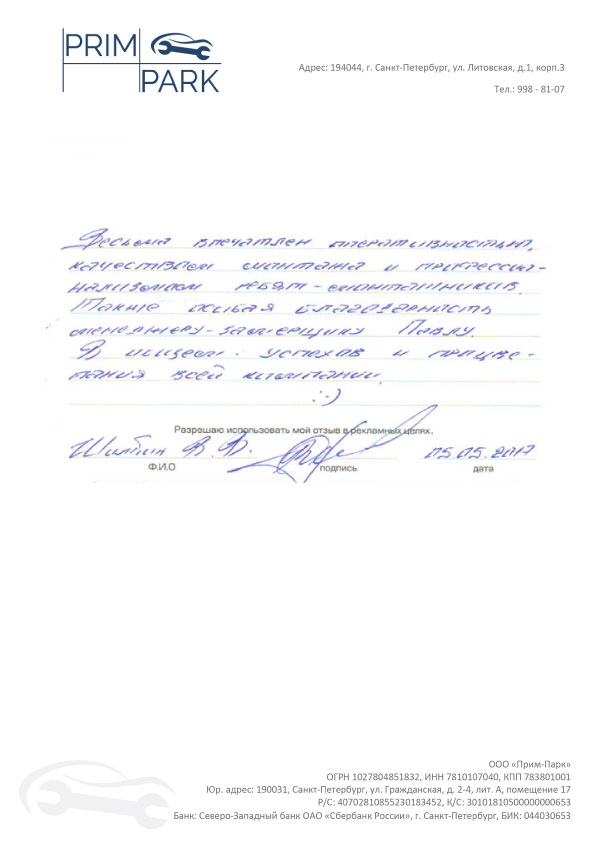 PRIM
PARK
Адрес: 194044, г. Санкт-Петербург, ул. Литовская, д.1, корп.3
Тел.: 998 - 81-07
Весьма впечатлен оперативностью,
качеством монтажа и профессио-
нализмом ребят-монтажников.
Также особая благодарность
менеджеру-замерщику Павлу.
В общем: успехов и процве-
тания всей компании.
:-)
Разрешаю использовать мой отзыв в рекламных целях.
В. В. 05.05.2017
Ф.И.О подпись дата
ООО «Прим-Парк»
ОГРН 1027804851832, ИНН 7810107040, КПП 783801001
Юр. адрес: 190031, Санкт-Петербург, ул. Гражданская, д. 2-4, лит. А, помещение 17
Р/С: 40702810855230183452, К/С: 30101810500000000653
Банк: Северо-Западный банк ОАО «Сбербанк России», г. Санкт-Петербург, БИК: 044030653